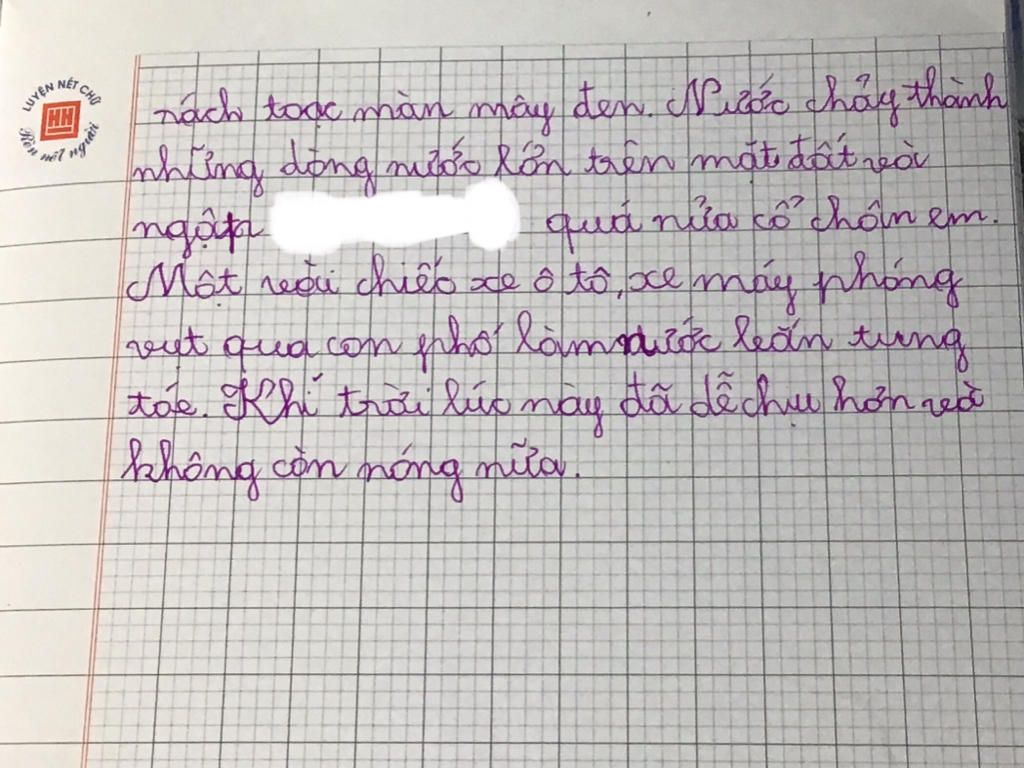 LUYỆN NÉT CHỮ
HH
Rèn nết người
rách toạc màn mây đen. Nước chảy thành
những dòng nước lớn trên mặt đất rồi
ngập quá nửa cổ chân em.
Một vài chiếc xe ô tô, xe máy phóng
vụt qua con phố làm nước bắn tung
tóe. Khí trời lúc này đã dễ chịu hơn và
không còn nóng nữa.